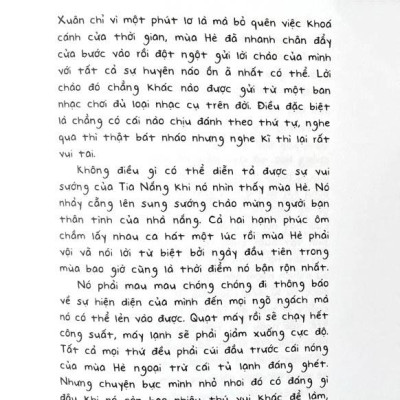 Xuân chỉ vì một phút lơ là mà bỏ quên việc khoá
cánh cửa thời gian, mùa Hè đã nhanh chân đẩy
cửa bước vào rồi đột ngột gửi lời chào của mình
với tất cả sự huyên náo ồn ã nhất có thể. Lời
chào đó chẳng khác nào được gửi từ một ban
nhạc chơi đủ loại nhạc cụ trên đời. Điều đặc biệt
là chẳng có cái nào chịu đánh theo thứ tự, nghe
qua thì thật bát nháo nhưng nghe kĩ thì lại rất
vui tai.
Không điều gì có thể diễn tả được sự vui
sướng của Tia Nắng khi nó nhìn thấy mùa Hè. Nó
nhảy cẫng lên sung sướng chào mừng người bạn
thân tình của nhà nắng. Cả hai hạnh phúc ôm
chầm lấy nhau ca hát một lúc rồi mùa Hè phải
vội vã nói lời từ biệt bởi ngày đầu tiên trong
mùa bao giờ cũng là thời điểm nó bận rộn nhất.
Nó phải mau mau chóng chóng đi thông báo
về sự hiện diện của mình đến mọi ngõ ngách mà
nó có thể len vào được. Quạt máy rồi sẽ chạy hết
công suất, máy lạnh sẽ phải giảm xuống cực độ.
Tất cả mọi thứ đều phải cúi đầu trước cái nóng
của mùa Hè ngoại trừ cái tủ lạnh đáng ghét.
Nhưng chuyện bực mình nhỏ nhoi đó có đáng gì
đâu khi nó còn bao nhiêu thú vui khác để làm,